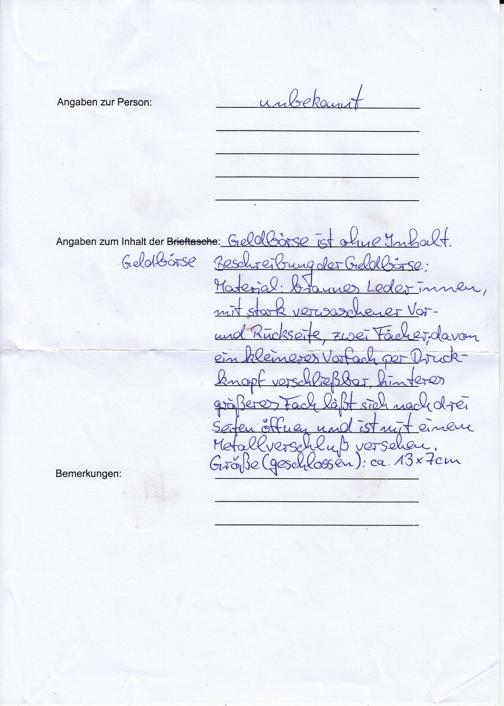 Angaben zur Person: unbekannt
Angaben zum Inhalt der Brieftasche: Geldbörse ist ohne Inhalt.
Geldbörse Beschreibung der Geldbörse:
Material: braunes Leder innen,
mit stark verwaschener Vor-
und Rückseite, zwei Fächer, davon
ein kleineres Vorfach per Druck-
knopf verschließbar, hinteres
größeres Fach läßt sich nach drei
Seiten öffnen und ist mit einem
Metallverschluß versehen.
Größe (geschlossen): ca. 13x7cm
Bemerkungen: